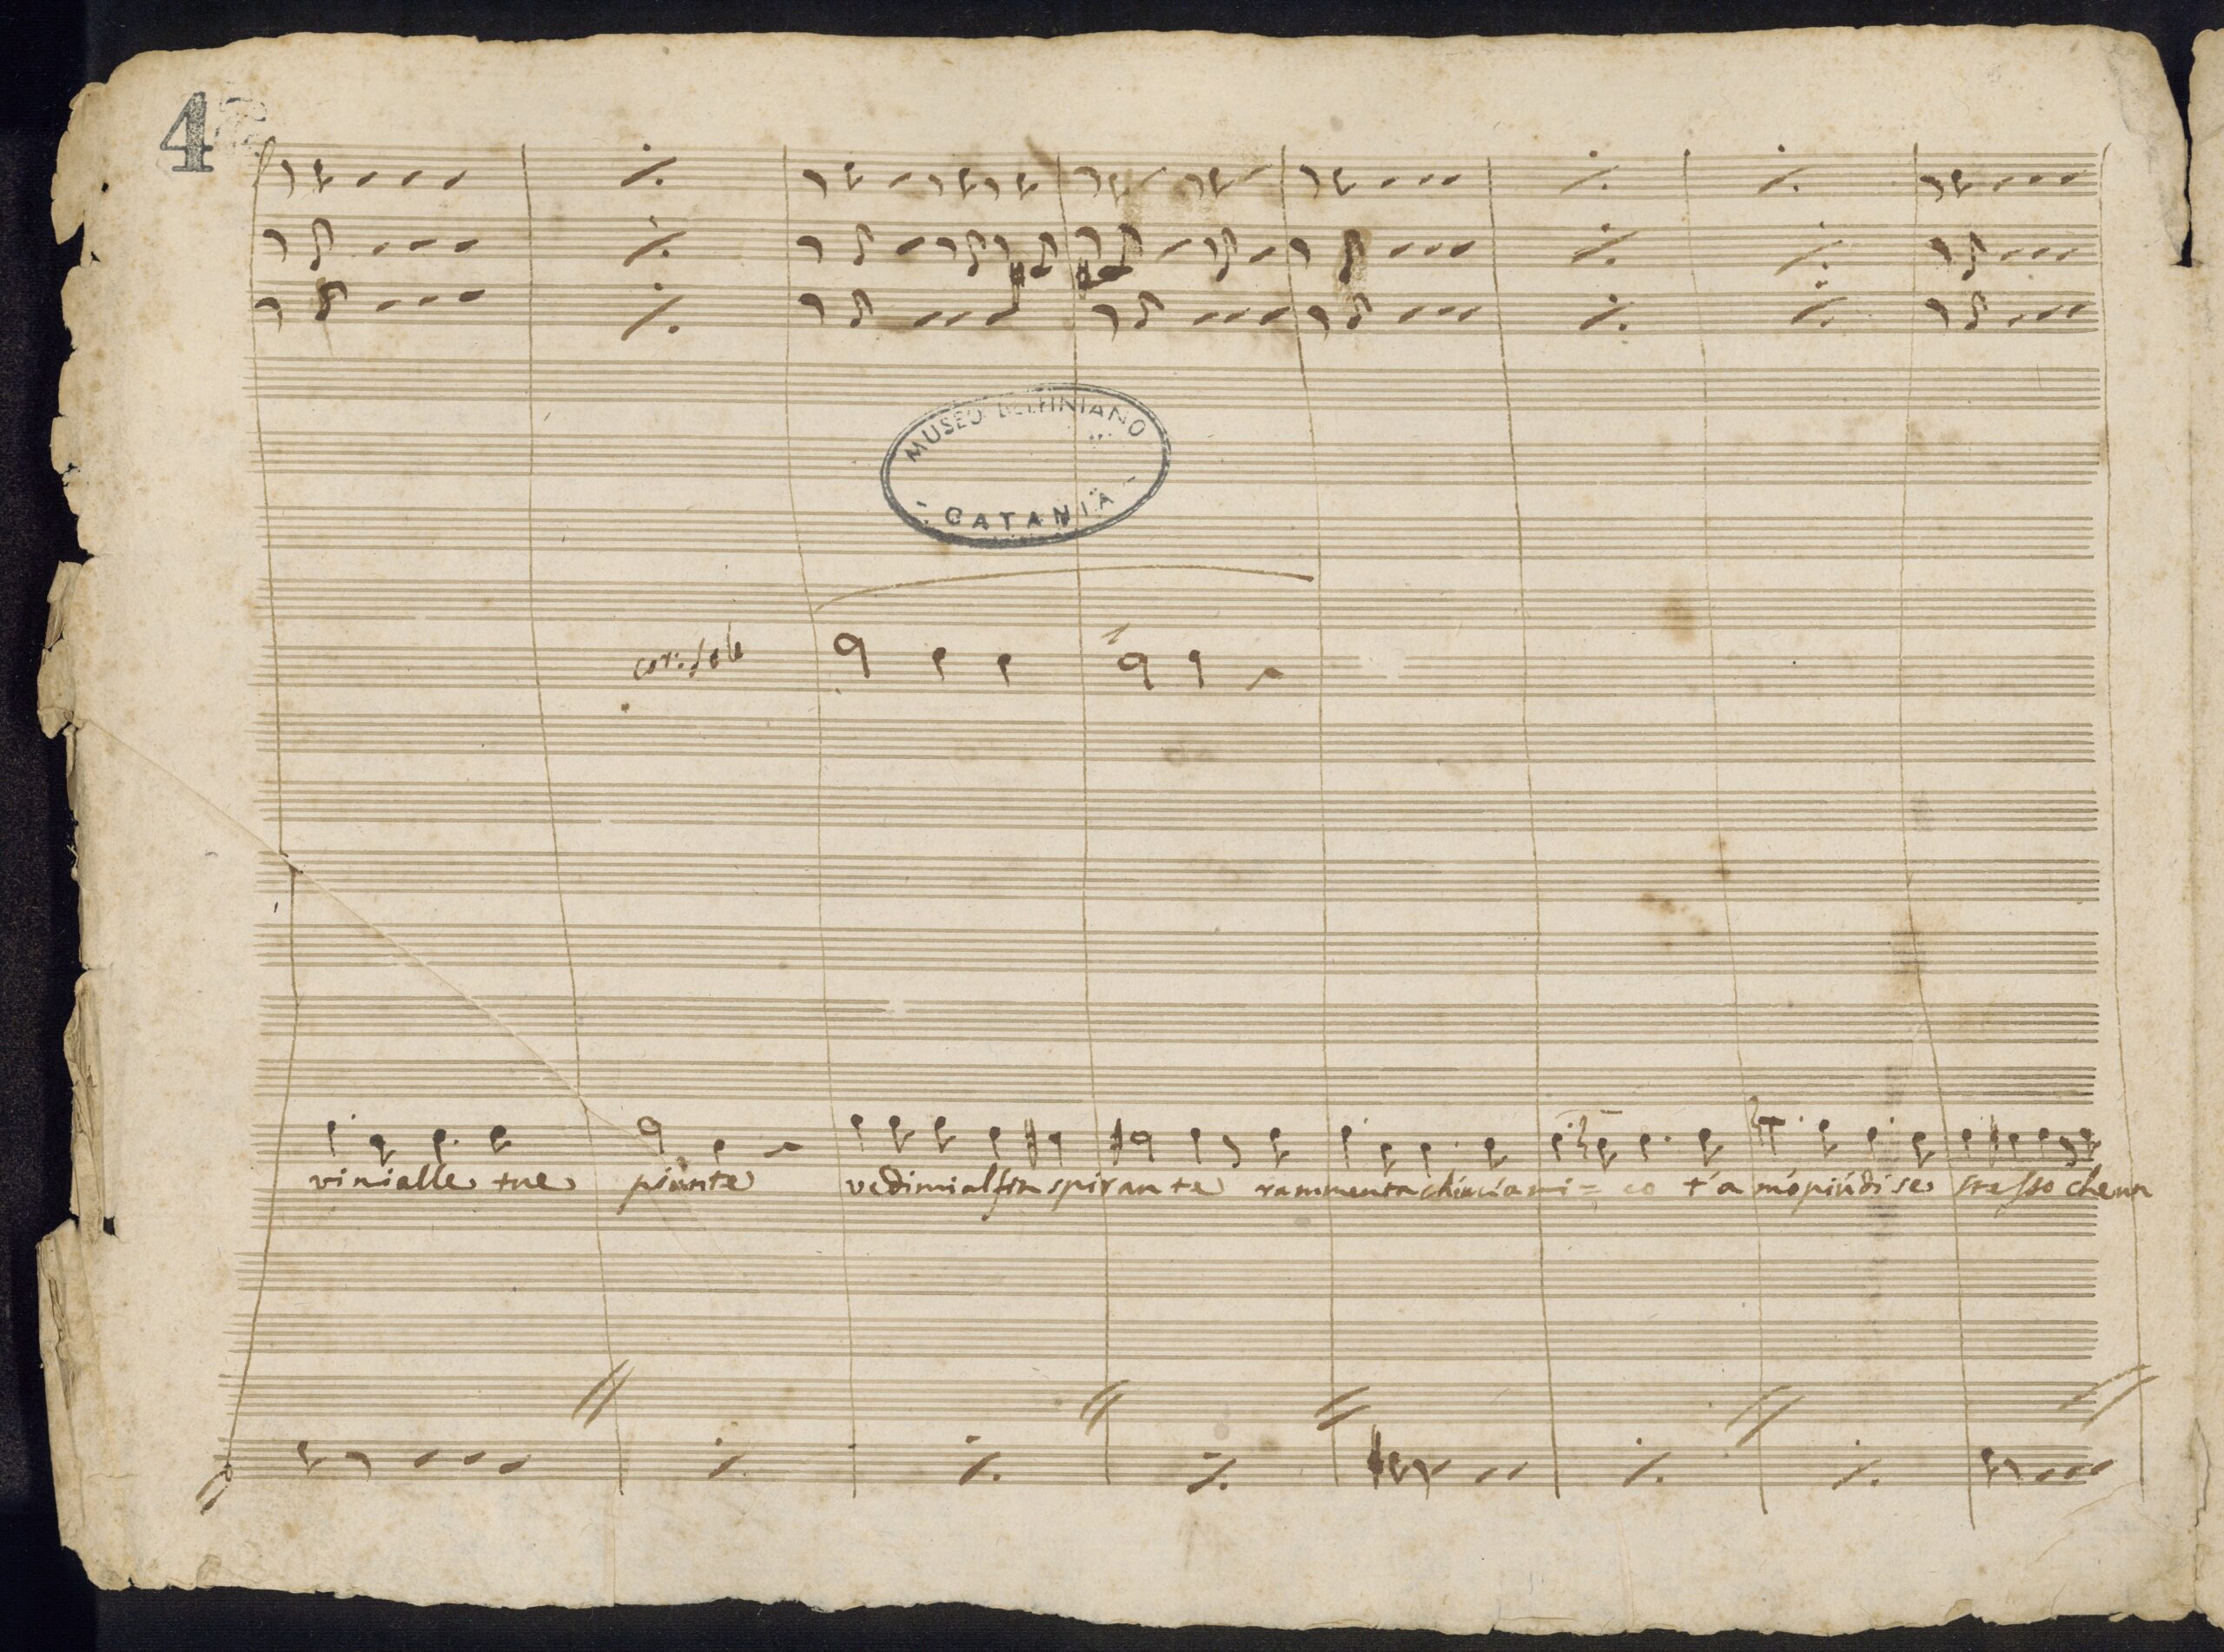 4
MUSEO BELLINIANO
CATANIA
cor: solo
vini alle tue piante vedimi alfin spirante rammenta chiuciami= co t'a mó piú di se stesso che un